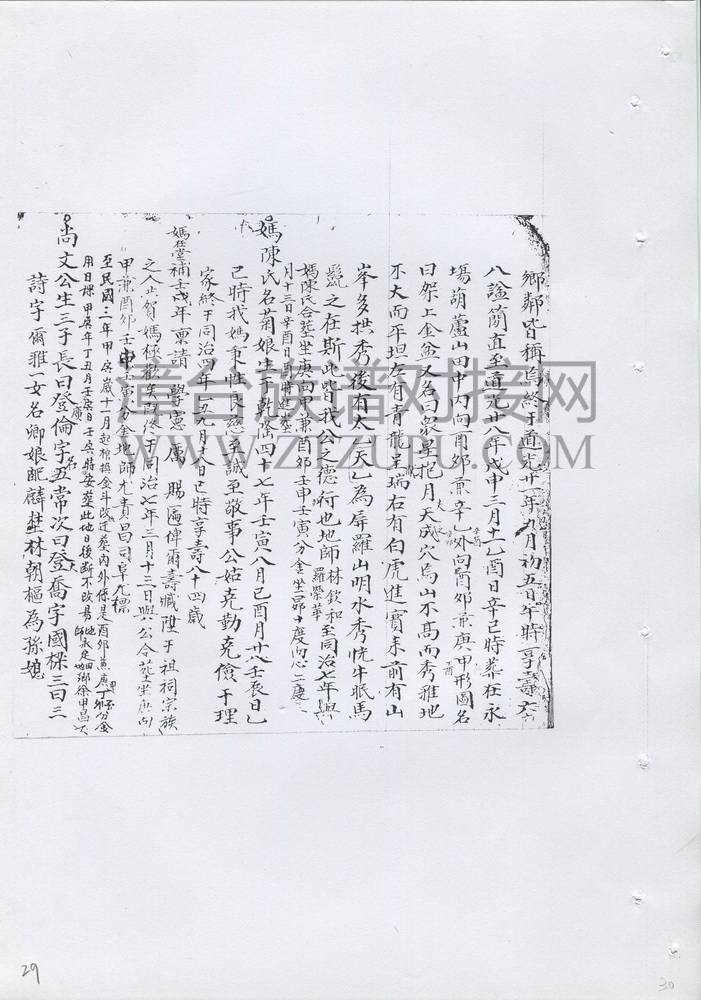 鄉鄰皆稱焉終于道光廿一年九月初五日午時享壽六
八諡簡直至道光廿八年戊申三月十二乙酉日辛巳時葬在永
塲葫蘆山田中內向酉卯兼辛乙外向酉卯兼庚甲形圖名
曰架上金盆又名曰衆星抱月天成穴烏山不髙而秀雅地
不大而平坦左有青龍呈瑞右有白虎進寶來前有山
峯多拱秀後有太乙天乙為屏羅山明水秀恍牛眠馬
鬛之在斯此皆我公之德行也地師林欽和羅榮華至同治七年與
媽陳氏合塟坐庚向甲兼酉卯壬申壬寅分金坐昴十度向心二度
月十三日辛酉日酉時進塟
媽陳氏名菊娘生于乾隆四十七年壬寅八月己酉月廿八壬辰日乙
己時我媽秉性良慈至誠至敬事公姑克勤克儉于理
家終于同治四年乙丑九月十八日巳時享壽八十四歲
媽在堂補壬戌年稟請 學憲厲 賜匾俾爾壽臧陞于祖祠宗族
之人止賀媽極歡矣而後于同治七年三月十三日與公合塟坐庚向
甲兼酉卯壬申壬寅分金地師尤青昌司阜九標
至民國二十一年 歲十一月起棺換金斗改迁墓內外係是酉卯兼庚甲丁卯分金
用日課甲庚年丁丑月壬癸日壬癸時安塟此地日後斷不改易地師永定四鄉徐甲昌
尚文公生三子長曰登倫字五常次曰登喬字國樑三曰三
詩字爾雅一女名鄉娘配麟埜林朝樞為孫媳
漳台族谱对接网
WWW.ZTZUPU.COM
29
30